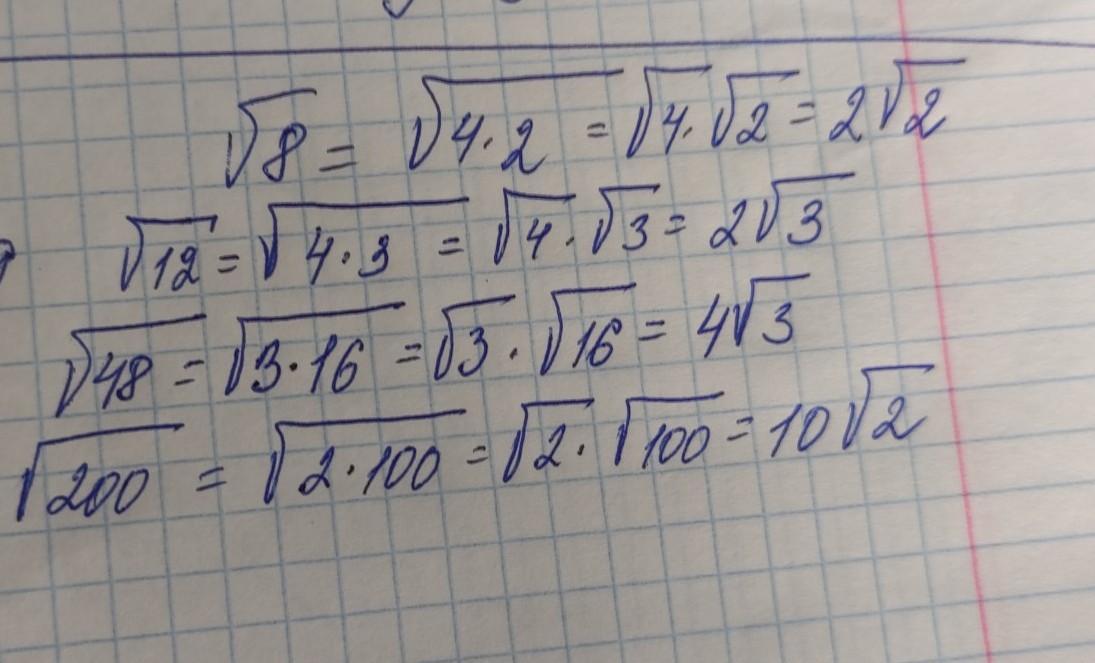 √8 = √4·2 = √4·√2 = 2√2
√12 = √4·3 = √4·√3 = 2√3
√48 = √3·16 = √3·√16 = 4√3
√200 = √2·100 = √2·√100 = 10√2